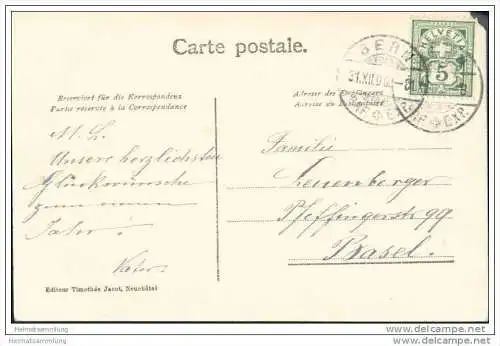 Carte postale.
HELVETIA
5
BERN
31.XII.0
BR. EXP.
BR. EXP.
Reserviert für die Korrespondenz
Partie réservée à la Correspondance
Adresse des Empfängers
Adresse du Destinataire
M. L.
Unsere herzlichsten
Glückwünsche
zum neuen
Jahr!
Vater.
Familie
Leuenberger
Pfeffingerstr 99
Basel.
Editeur Timothée Jacot, Neuchâtel
Heimatsammlung
Heimatsammlung.com